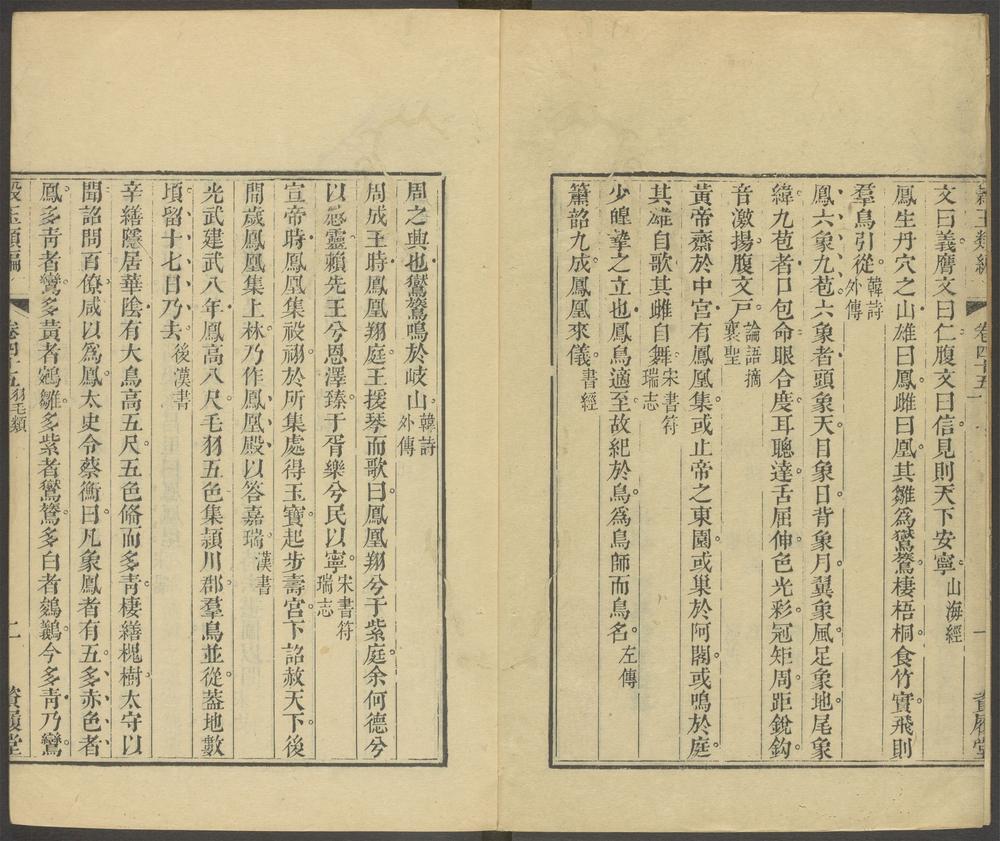 卷四十五
一
文曰義膺文曰仁腹文曰信見則天下安寧山海經
鳳生丹穴之山雄曰鳳雌曰凰其雛爲鸑鷟棲梧桐食竹實飛則
羣鳥引從韓詩外傳
鳳六象九苞六象者頭象天目象日背象月翼象風足象地尾象
緯九苞者口包命眼合度耳聰達舌屈伸色光彩冠矩周距銳鈎
音激揚腹文戸論語摘襄聖
黃帝齋於中宮有鳳凰集或止帝之東園或巢於阿閣或鳴於庭
其雄自歌其雌自舞宋書符瑞志
少皞摯之立也鳳鳥適至故紀於鳥爲鳥師而鳥名左傳
簫韶九成鳳凰來儀書經
周之興也鸑鷟鳴於岐山韓詩外傳
周成王時鳳凰翔庭王援琴而歌曰鳳凰翔兮于紫庭余何德兮
以感靈賴先王兮恩澤臻于胥樂兮民以寧宋書符瑞志
宣帝時鳳凰集祋祤於所集處得玉寶起步壽宮下詔赦天下後
間歲鳳凰集上林乃作鳳凰殿以答嘉瑞漢書
光武建武八年鳳高八尺毛羽五色集潁川郡羣鳥並從葢地數
頃留十七日乃去後漢書
辛繕隱居華陰有大鳥高五尺五色備而多青棲繕槐樹太守以
聞詔問百僚咸以爲鳳太史令蔡衡曰凡象鳳者有五多赤色者
鳳多青者鸞多黃者鵷雛多紫者鸑鷟多白者鷫鸘今多青乃鸞
類編
卷四十五羽毛類
二
資履堂